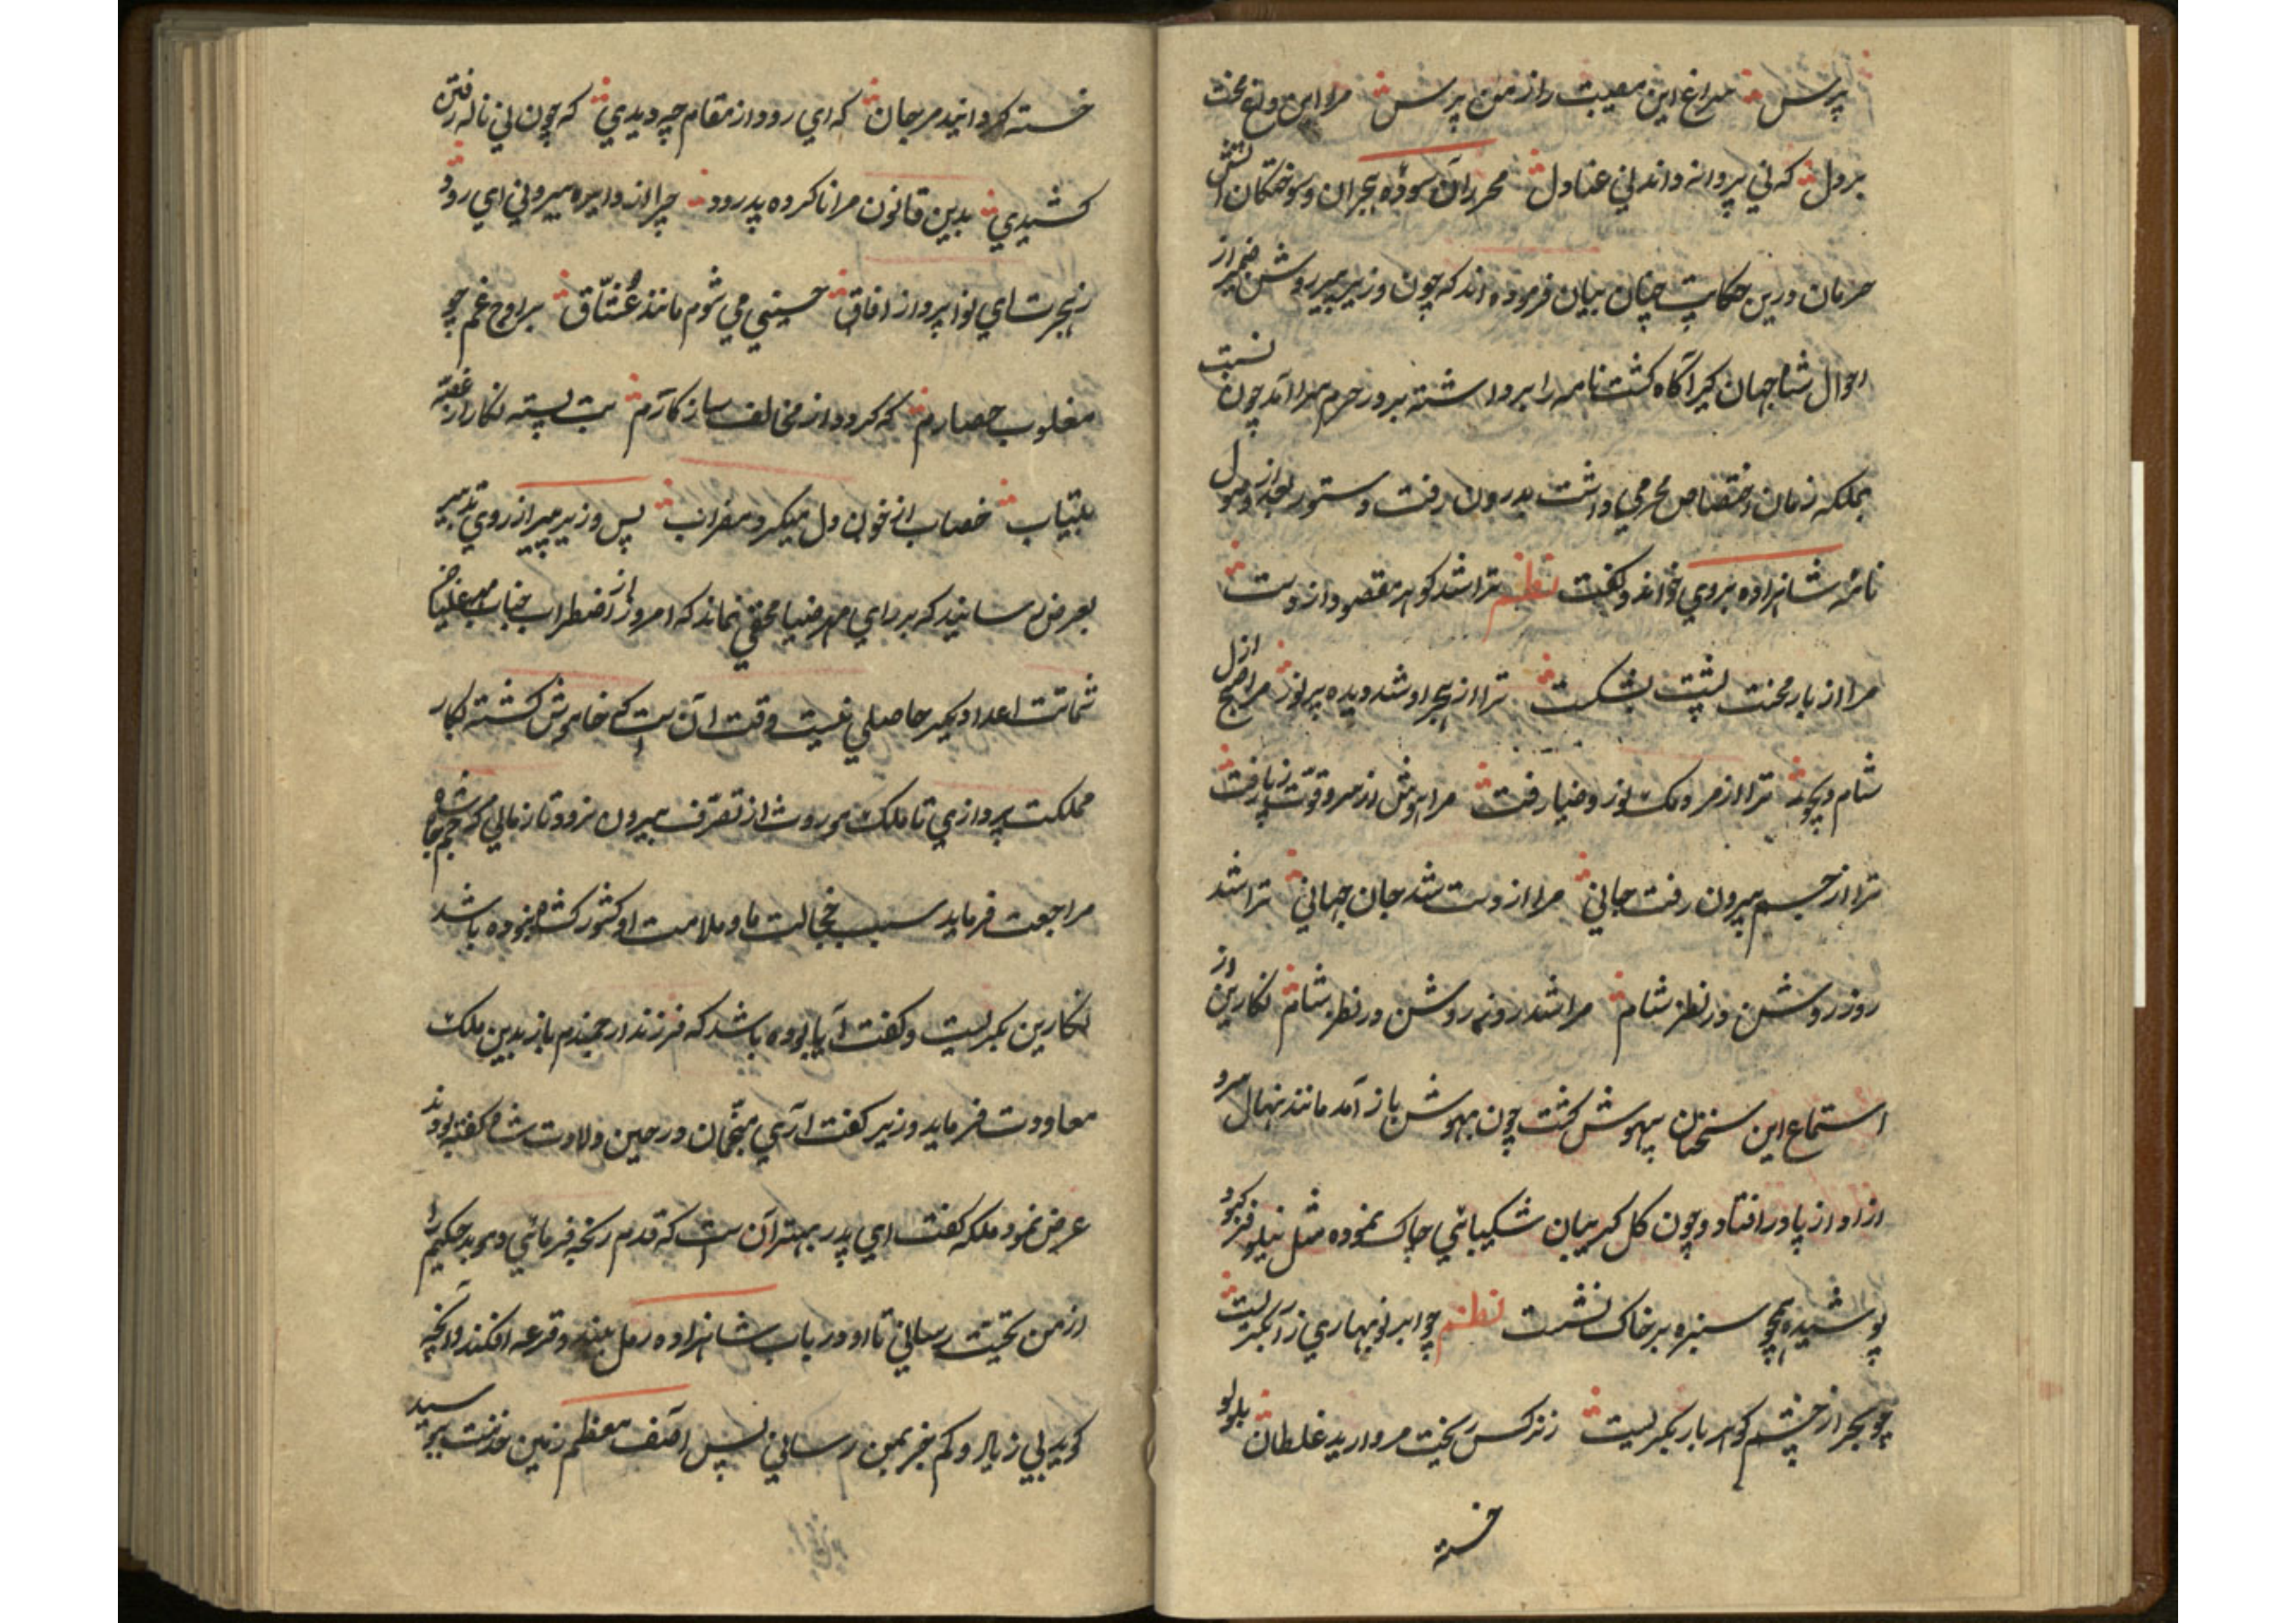 پرس سراغ این مصیبت را از من پرس مرا این داغ محنت
بر دل که نی پروانه داند نی عنادل محرران سوده هجران و سوختگان آتش
حرمان درین حکایت چنان بیان فرموده اند که چون وزیر پیر روشن ضمیر از
احوال شاه جهان کیر آگاه کشت نامه را برداشته بر در حرم سرا آمد چون نسبت
بملکه زمان اختصاص محرمی داشت بدرون رفت و دستور بعد از وصول
نامه شاهزاده بروی خواند و کفت نظم ترا شد کوهر مقصود از دست
مرا از بار محنت پشت بشکست ترا از هجر او شد دیده پرنور مرا صبح ازل
شام دیجور ترا از مردمک نور و ضیا رفت مرا هوش از سر و قوت ز پا رفت
ترا از جسم بیرون رفت جانی مرا از دست شد جان جهانی ترا شد
روز روشن در نظر شام مرا شد روز روشن در نظر شام نکارین از
استماع این سخنان بیهوش کشت چون بهوش باز آمد مانند نهال سرو
آزاد از پا در افتاد و چون کل کریبان شکیبائی چاک نموده مثل نیلوفر کبود
پوشیده همچو سبزه بر خاک نشست نظم چو ابر نوبهاری زار بکریست
چو بحر از چشم کوهربار بکریست ز نرکس ریخت مروارید غلطان بلولو
خسته
خسته کردانید مرجان که ای رود از مقام چه دیدی که چون نی ناله رفتن
کشیدی بدین قانون مرا ناکرده پدرود چرا از دایره بیرونی ای رود
ز هجرت ای نوا پرواز آفاق حسینی می شوم مانند عشاق بر اوج غم چو
مغلوب حصارم که کردد از مخالف ساز کارم بت پسته نکار از غصه
بیتاب خضاب از خون دل میکرد عناب پس وزیر پیر از روی تدبیر
بعرض رسانید که بر رای مهر ضیا مخفی نماند که امروز از اضطراب جناب
شماتت اعدا دیکر حاصلی نیست وقت آن ست که خاموش کشته بکار
مملکت پردازی تا ملک موروث از تصرف بیرون نرود تا زمانی که شه جمجاه
مراجعت فرماید سبب خجالت ما و ملامت او کشورکشا نبوده باشد
نکارین بکریست و کفت آیا بوده باشد که فرزند ارجمندم باز بدین ملک
معاودت فرماید وزیر کفت آری منجمان در حین ولادت شاه کفته بودند
عرض نمود ملکه کفت ای پدر بهتر آن ست که قدم رنجه فرمائی و موبد حکیم را
از من تحیت رسانی تا او در باب شاهزاده رمل بیند و قرعه افکند و آنچه
کوید بی زیاد و کم خبر بمن رسانی پس آصف معظم زمین خدمت بوسید